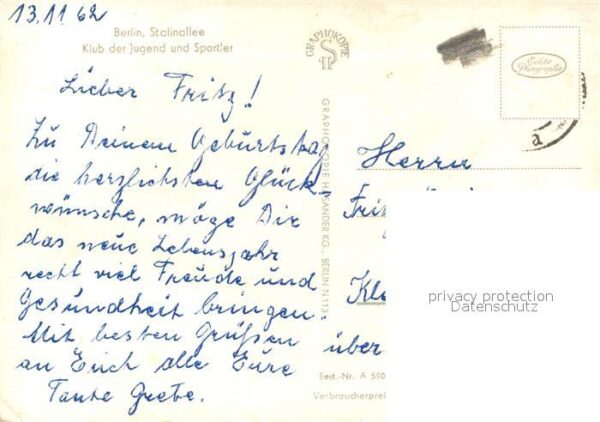 13.11.62
Berlin, Stalinallee
Klub der Jugend und Sportler
Lieber Fritz!
Zu Deinem Geburtstag
die herzlichsten Glück-
wünsche, möge Dir
das neue Lebensjahr
recht viel Freude und
Gesundheit bringen.
Mit besten Grüßen
an Euch alle Eure
Tante Grete.
GRAPHOKOPIE
GRAPHOKOPIE H. SANDER KG., BERLIN N 113
Echte Photographie
Herrn
Fritz
Kle
über
privacy protection
Datenschutz
Best.-Nr. A 590
Verbraucherprei